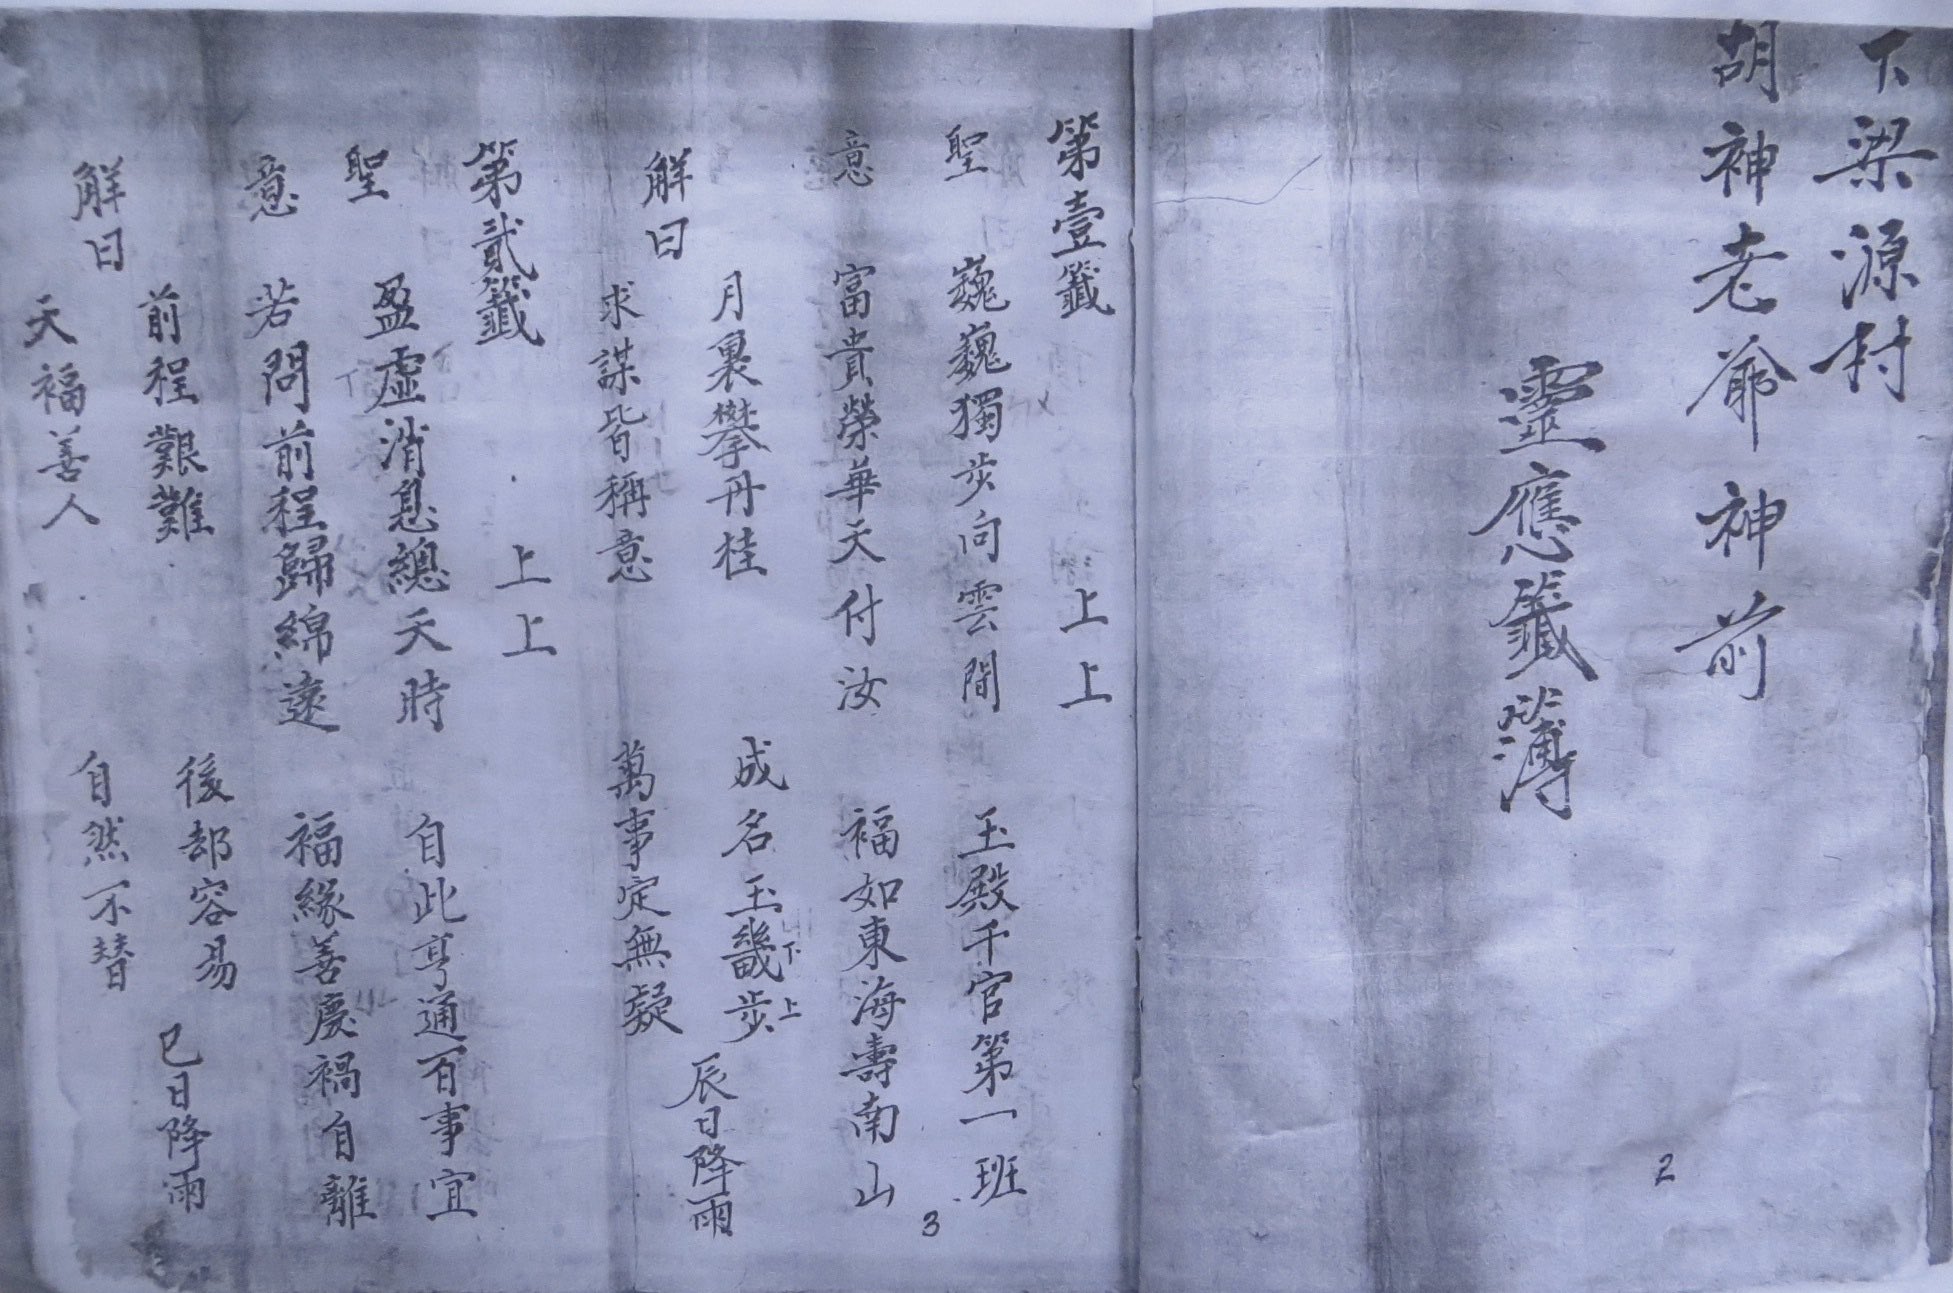 下梁源村
胡神老爺神前
靈應籤簿
2
第壹籤 上上
聖 巍巍獨步向雲間 玉殿千官第一班
意 富貴榮華天付汝 福如東海壽南山
月裏攀丹桂 成名玉畿步 下上
解曰 辰日降雨
求謀皆稱意 萬事定無疑
3
第貳籤 上上
聖 盈虛消息總天時 自此亨通百事宜
意 若問前程歸綿遠 福緣善慶禍自離
前程艱難 後却容易 巳日降雨
解曰
天福善人 自然不替